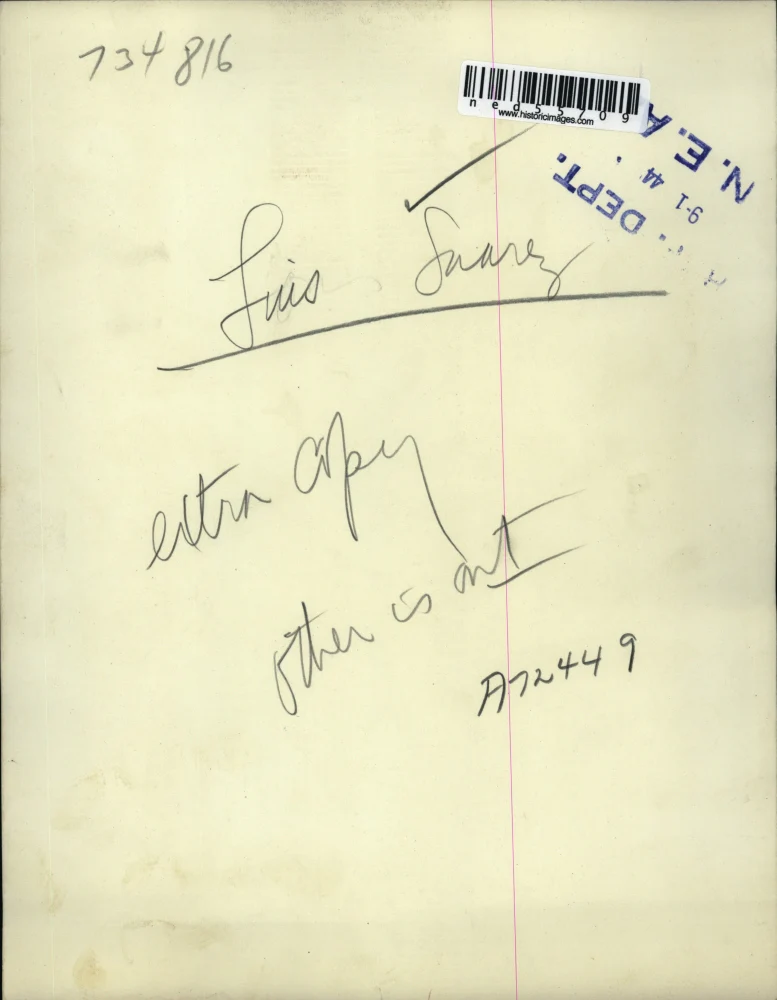 734 816
ned55709
www.historicimages.com
N. E. A.
DEPT.
9-1 44
Luis Suarez
extra copy
other is out
A72449